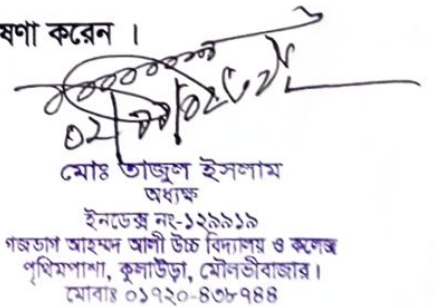 ষণা করেন ।
মোঃ তাজুল ইসলাম
অধ্যক্ষ
ইনডেক্স নং-১২৯৯১৯
আহম্মদ আলী উচ্চ বিদ্যালয় ও কলেজ
পৃথিমপাশা, কুলাউড়া, মৌলভীবাজার।
মোবাঃ ০১৭২০-৪৩৮৭৪৪